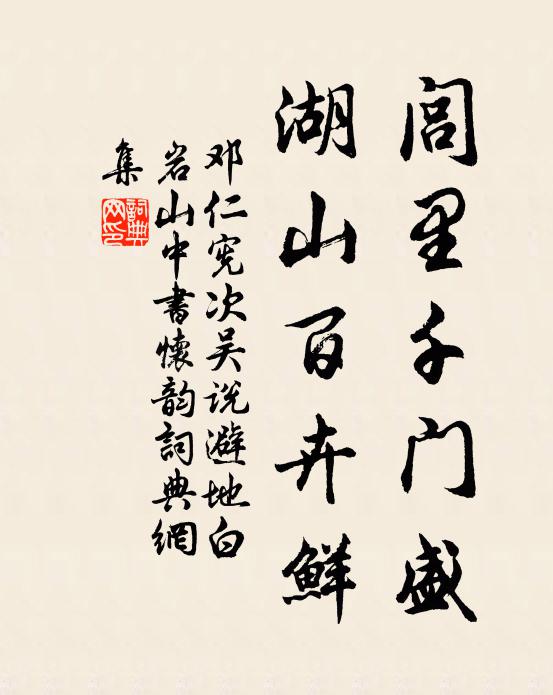 闾里千门盛
湖山百卉鲜
邓仁宪次吴说避地白
岩山中書懷韵詞典網
集
詞典网印